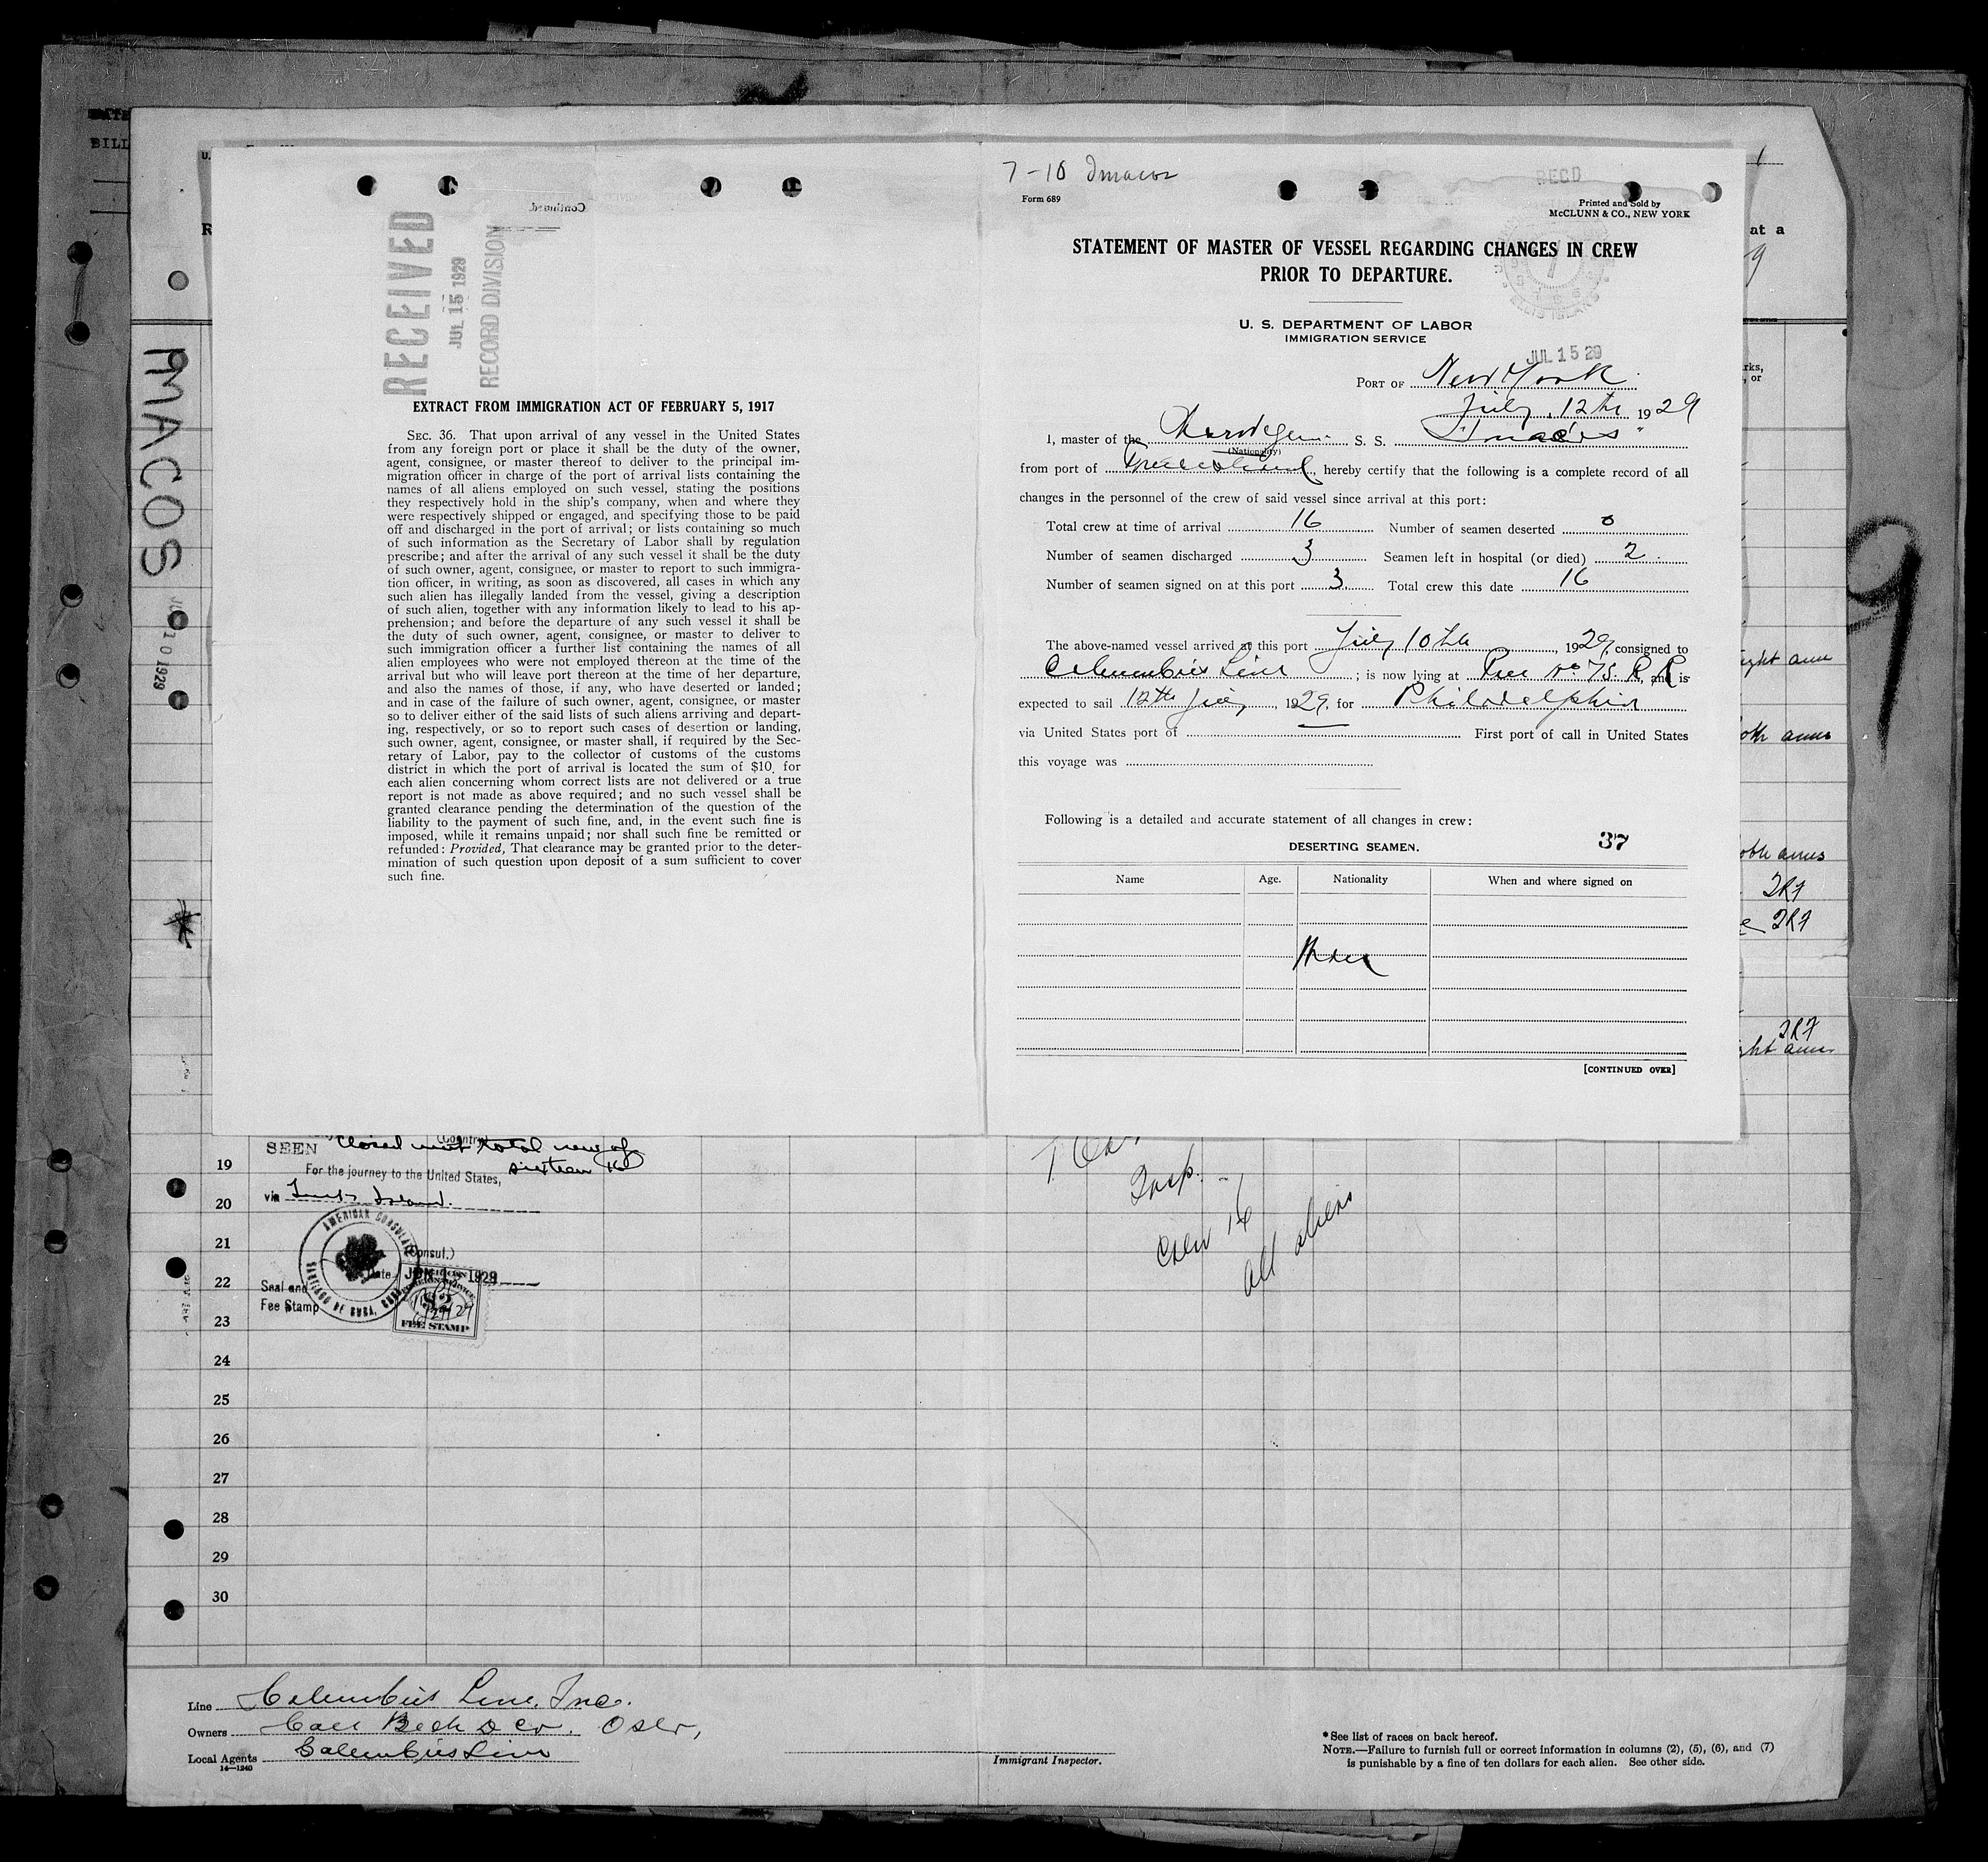 BILL
IMACOS
JUL 10 1929
Continued.
RECEIVED
JUL 15 1929
RECORD DIVISION
EXTRACT FROM IMMIGRATION ACT OF FEBRUARY 5, 1917
SEC. 36. That upon arrival of any vessel in the United States
from any foreign port or place it shall be the duty of the owner,
agent, consignee, or master thereof to deliver to the principal im-
migration officer in charge of the port of arrival lists containing the
names of all aliens employed on such vessel, stating the positions
they respectively hold in the ship's company, when and where they
were respectively shipped or engaged, and specifying those to be paid
off and discharged in the port of arrival; or lists containing so much
of such information as the Secretary of Labor shall by regulation
prescribe; and after the arrival of any such vessel it shall be the duty
of such owner, agent, consignee, or master to report to such immigra-
tion officer, in writing, as soon as discovered, all cases in which any
such alien has illegally landed from the vessel, giving a description
of such alien, together with any information likely to lead to his ap-
prehension; and before the departure of any such vessel it shall be
the duty of such owner, agent, consignee, or master to deliver to
such immigration officer a further list containing the names of all
alien employees who were not employed thereon at the time of the
arrival but who will leave port thereon at the time of her departure,
and also the names of those, if any, who have deserted or landed;
and in case of the failure of such owner, agent, consignee, or master
so to deliver either of the said lists of such aliens arriving and depart-
ing, respectively, or so to report such cases of desertion or landing,
such owner, agent, consignee, or master shall, if required by the Sec-
retary of Labor, pay to the collector of customs of the customs
district in which the port of arrival is located the sum of $10 for
each alien concerning whom correct lists are not delivered or a true
report is not made as above required; and no such vessel shall be
granted clearance pending the determination of the question of the
liability to the payment of such fine, and, in the event such fine is
imposed, while it remains unpaid; nor shall such fine be remitted or
refunded: Provided, That clearance may be granted prior to the deter-
mination of such question upon deposit of a sum sufficient to cover
such fine.
7-10 Imacos
REC'D
Form 689
Printed and Sold by
McCLUNN & CO., NEW YORK
STATEMENT OF MASTER OF VESSEL REGARDING CHANGES IN CREW
PRIOR TO DEPARTURE.
ELLIS ISLAND
U. S. DEPARTMENT OF LABOR
IMMIGRATION SERVICE
JUL 15 29
PORT OF New York
July 12th 1929
I, master of the Norwegian S. S. "Imacos"
(Nationality)
from port of , hereby certify that the following is a complete record of all
changes in the personnel of the crew of said vessel since arrival at this port:
Total crew at time of arrival 16 Number of seamen deserted 0
Number of seamen discharged 3 Seamen left in hospital (or died) 2
Number of seamen signed on at this port 3 Total crew this date 16
The above-named vessel arrived at this port July 10th, 1929, consigned to
Columbus Line; is now lying at Pier No 75. R, and is
expected to sail 12th July, 1929, for Philadelphia
via United States port of First port of call in United States
this voyage was
Following is a detailed and accurate statement of all changes in crew:
DESERTING SEAMEN. 37
Name Age. Nationality When and where signed on
None
[CONTINUED OVER]
at a
9
rks,
, or
9
ight arm
oth arms
oth arms
2R7
2R7
2R7
ght arm
SEEN closed with total crew of
(Country)
sixteen 16
For the journey to the United States,
via Turks Island.
AMERICAN CONSULATE
SANTIAGO DE CUBA, CUBA
(Consul.)
Date 1929
Seal and
Fee Stamp
$2
FEE STAMP
Insp.
Crew 16
All aliens
19
20
21
22
23
24
25
26
27
28
29
30
Line Columbus Line, Inc.
Owners Carl Bech & Co. Oslo,
Local Agents Columbus Line
14—1240
Immigrant Inspector.
* See list of races on back hereof.
NOTE.—Failure to furnish full or correct information in columns (2), (5), (6), and (7)
is punishable by a fine of ten dollars for each alien. See other side.